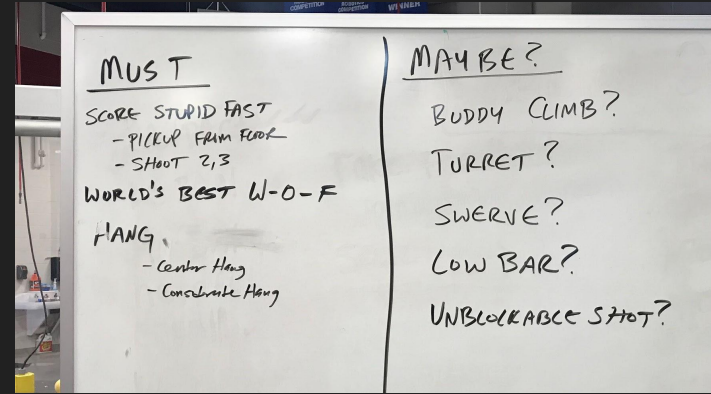 COMPETITION
WINNER
MUST
SCORE STUPID FAST
- PICKUP FROM FLOOR
- SHOOT 2,3
WORLD'S BEST W-O-F
HANG
- Center Hang
- Hang
MAYBE?
BUDDY CLIMB?
TURRET?
SWERVE?
LOW BAR?
UNBLOCKABLE SHOT?